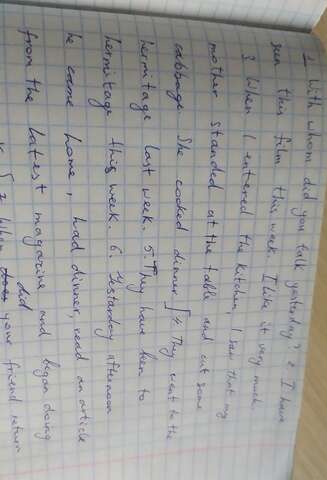 1 With whom did you talk yesterday? 2. I have
seen this film this week. I like it very much.
3 When I entered the kitchen, I saw that my
mother standed at the table and cut some
cabbage. She cooked dinner. 4. They went to the
hermitage last week. 5. They have been to
hermitage this week. 6. Yesterday afternoon
he came home, had dinner, read an article
from the latest magazine and began doing
did
your friend return